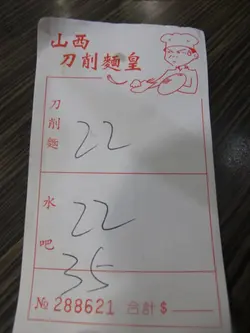 山西
刀削麵皇
刀削麵 22
水吧 22
35
№ 288621 合計 $